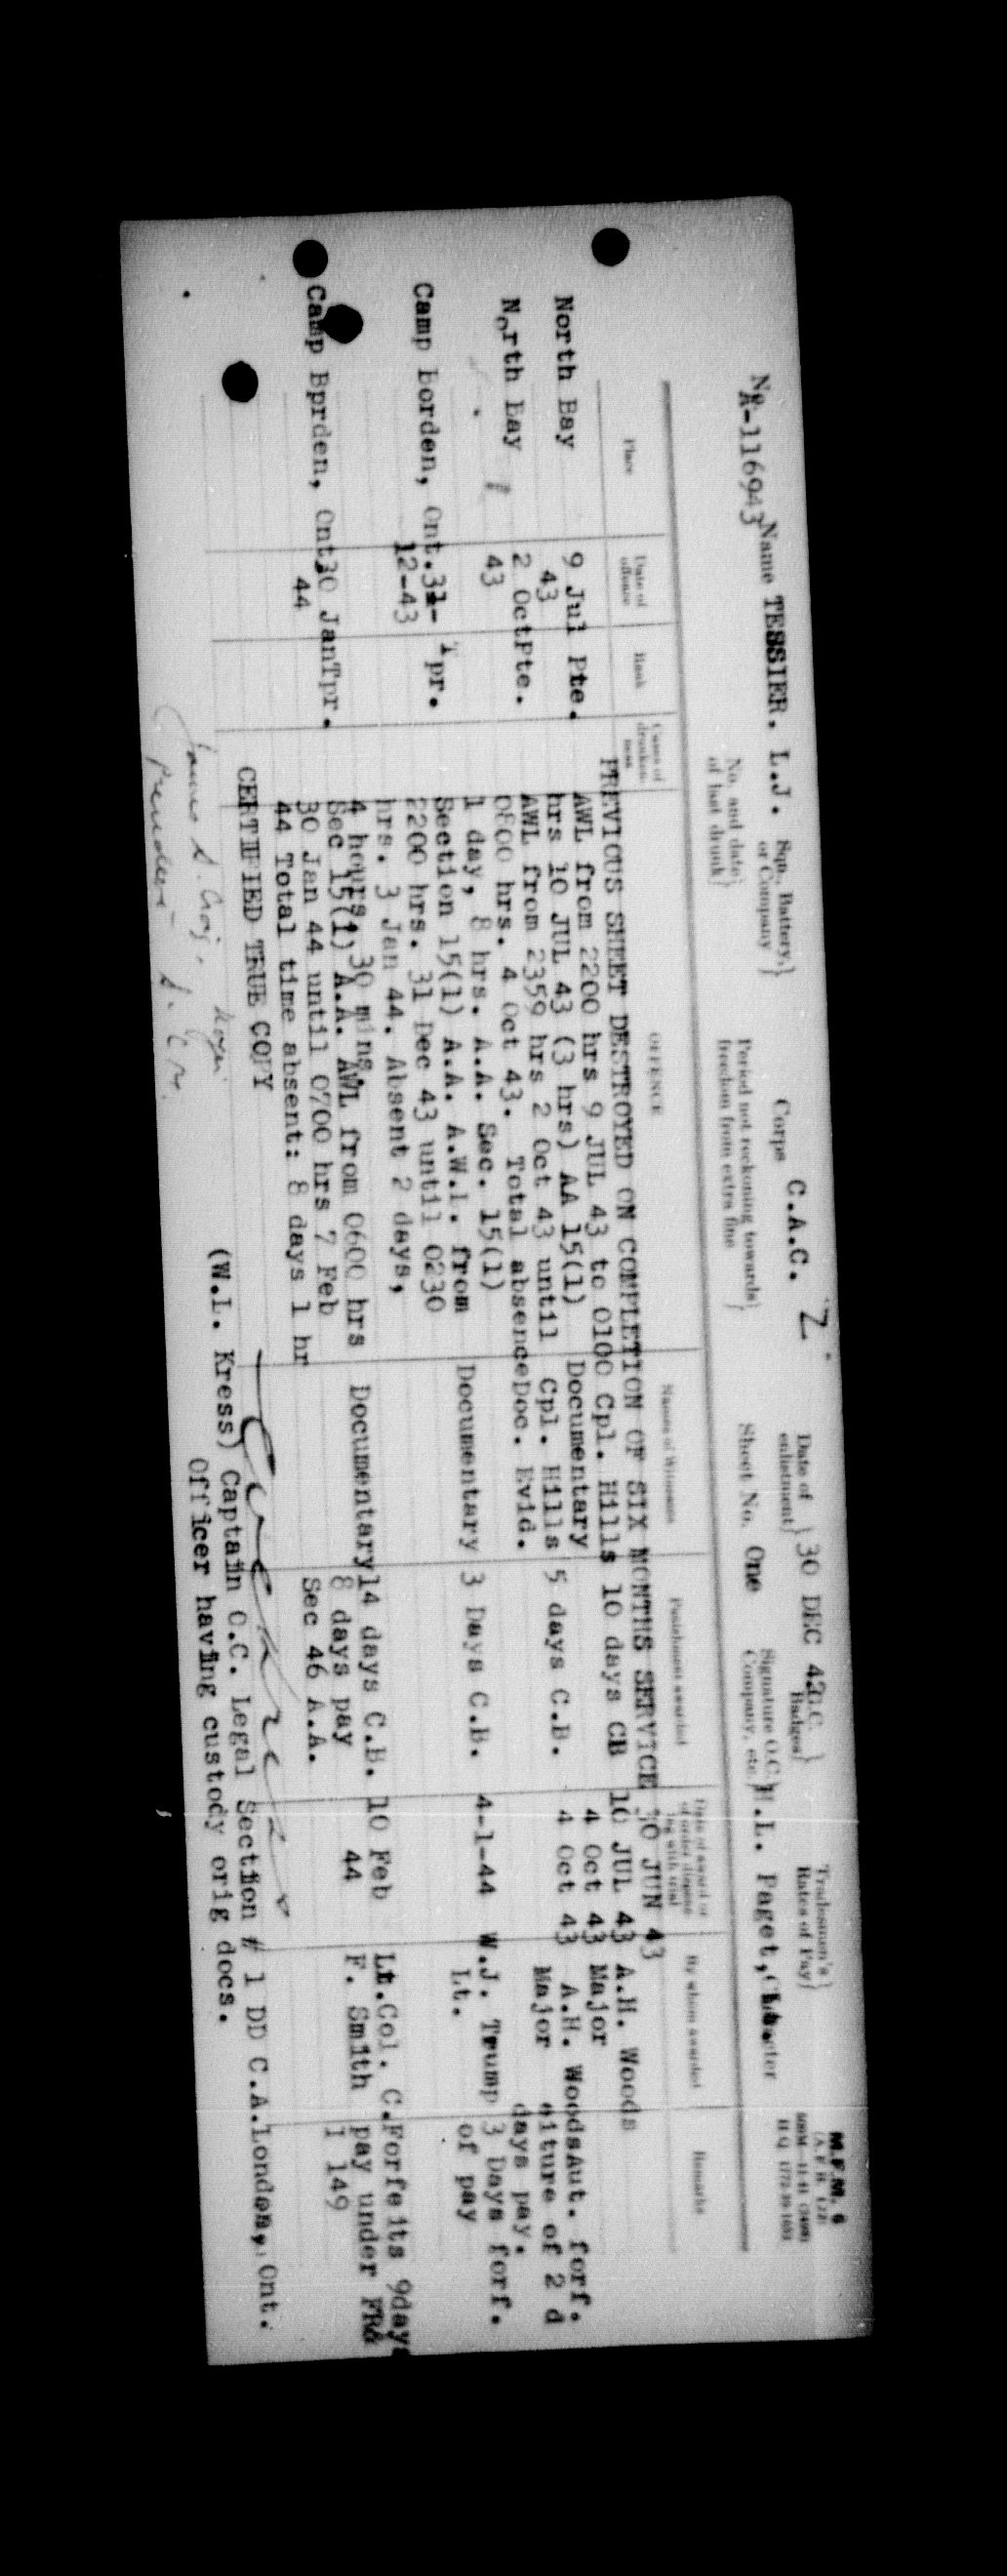 M.F.M. 6
No. A-116943 Name TESSIER. L.J. Sqn., Battery, or Company Corps C.A.C. "Z" Date of enlistment 30 DEC 42 G.C. Badges Tradesman's Rates of Pay
No. and date of last drunk Period not reckoning towards freedom from extra fine Sheet No. One Signature O.C. Company, etc. H.L. Paget,
Place Date of offence Rank Cases of drunkenness OFFENCE Names of Witnesses Punishment awarded Date of award or of order dispensing with trial By whom awarded Remarks
PREVIOUS SHEET DESTROYED ON COMPLETION OF SIX MONTHS SERVICE 30 JUN 43
North Bay 9 Jul Pte. AWL from 2200 hrs 9 JUL 43 to 0100 Cpl. Hills 10 days CB 10 JUL 43 A.H. Woods
43 hrs 10 JUL 43 (3 hrs) AA 15(1) Documentary 4 Oct 43 Major
North Bay 2 Oct Pte. AWL from 2359 hrs 2 Oct 43 until Cpl. Hills 5 days C.B. 4 Oct 43 A.H. Woods Aut. forf.
43 0800 hrs. 4 Oct 43. Total absence Doc. Evid. Major eiture of 2 d
1 day, 8 hrs. A.A. Sec. 15(1) days pay.
Camp Borden, Ont. 31- Tpr. Section 15(1) A.A. A.W.l. from Documentary 3 Days C.B. 4-1-44 W.J. Trump 3 Days forf.
12-43 2200 hrs. 31 Dec 43 until 0230 Lt. of pay
hrs. 3 Jan 44. Absent 2 days,
4 hours, 30 mins.
Camp Bprden, Ont, 30 Jan Tpr. Sec 15(1) A.A. AWL from 0600 hrs Documentary 14 days C.B. 10 Feb Lt.Col. C. Forfeits 9days
44 30 Jan 44 until 0700 hrs 7 Feb 8 days pay 44 F. Smith pay under FR&
44 Total time absent: 8 days 1 hr Sec 46 A.A. I 149
CERTIFIED TRUE COPY
(W.L. Kress) Captain O.C. Legal Section # 1 DD C.A. London, Ont.
Officer having custody orig docs.